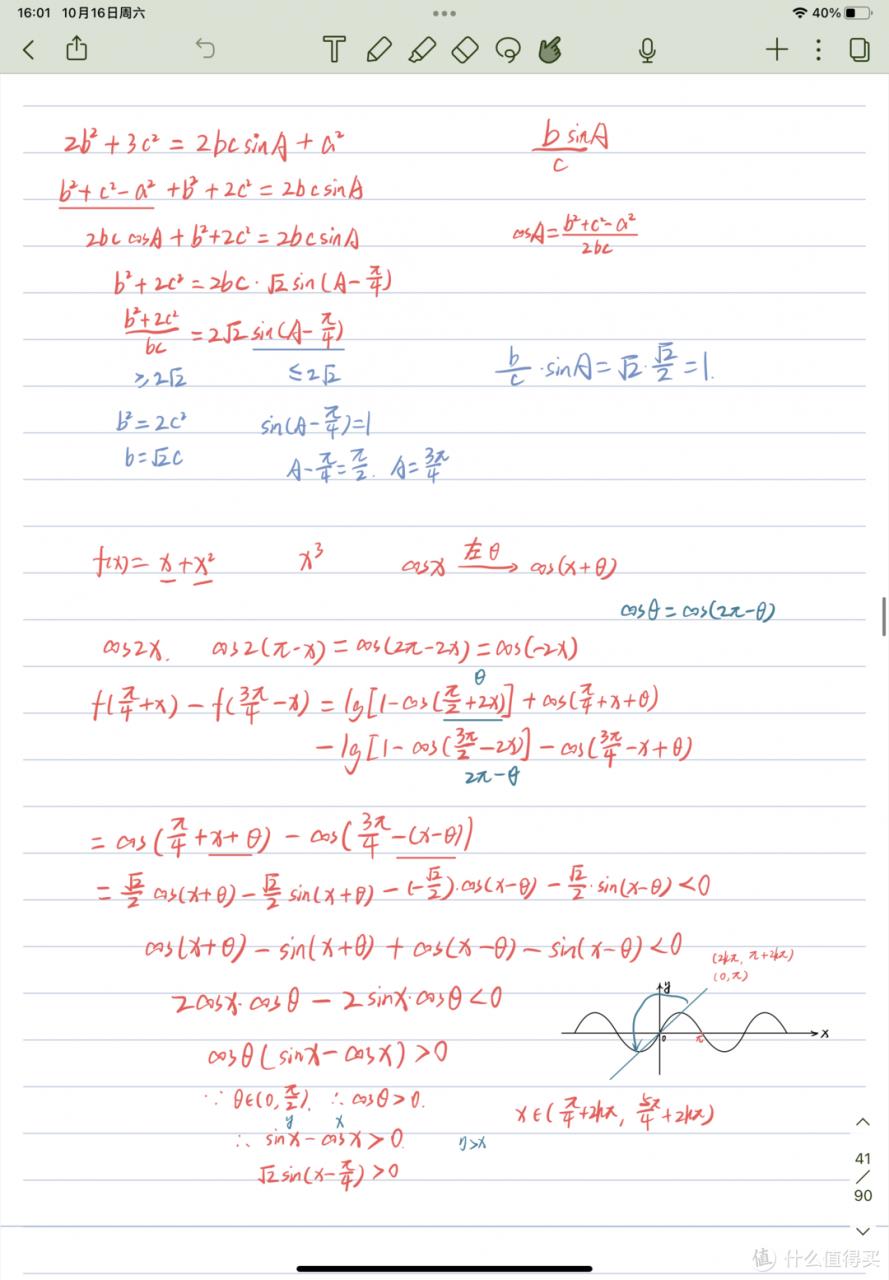 16:01 10月16日周六
40%
2b²+3c² = 2bcsinA + a²
bsinA/c
b²+c²-a² +b²+2c² = 2bcsinA
2bc cosA + b²+2c² = 2bcsinA
cosA = (b²+c²-a²)/2bc
b²+2c² = 2bc·√2 sin(A-π/4)
(b²+2c²)/bc = 2√2 sin(A-π/4)
≥2√2 ≤2√2
b/c · sinA = √2·√2/2 = 1.
b²=2c² sin(A-π/4)=1
b=√2c A-π/4=π/2. A=3π/4
f(x)= x+x² x³ cosx 左θ→ cos(x+θ)
cosθ=cos(2π-θ)
cos2x. cos2(π-x) = cos(2π-2x) = cos(-2x)
θ
f(π/4+x) - f(3π/4-x) = lg[1-cos(π/2+2x)] + cos(π/4+x+θ)
- lg[1-cos(3π/2-2x)] - cos(3π/4-x+θ)
2π-θ
= cos(π/4+x+θ) - cos(3π/4-(x-θ))
= √2/2 cos(x+θ) - √2/2 sin(x+θ) - (-√2/2)·cos(x-θ) - √2/2·sin(x-θ) <0
cos(x+θ) - sin(x+θ) + cos(x-θ) - sin(x-θ) <0
(2kπ, π+2kπ)
(0,π)
2cosx·cosθ - 2sinx·cosθ <0
y
0 π x
cosθ(sinx-cosx) >0
∵ θ∈(0,π/2), ∴ cosθ>0.
y x
x∈(π/4+2kπ, 5π/4+2kπ)
∴ sinx-cosx>0. y>x
√2sin(x-π/4)>0
41
/
90
值 什么值得买